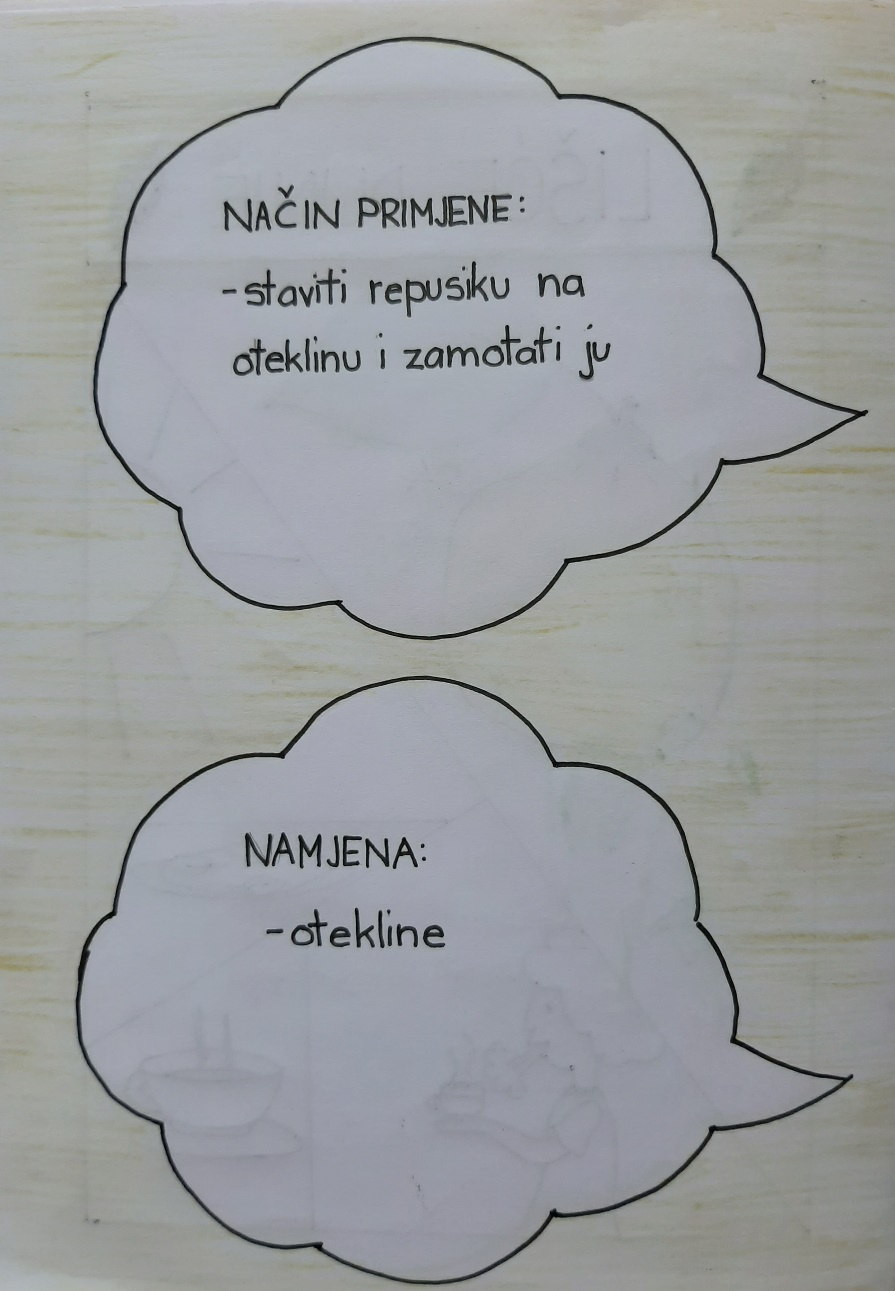 NAČIN PRIMJENE:
-staviti repusiku na
oteklinu i zamotati ju
NAMJENA:
-otekline